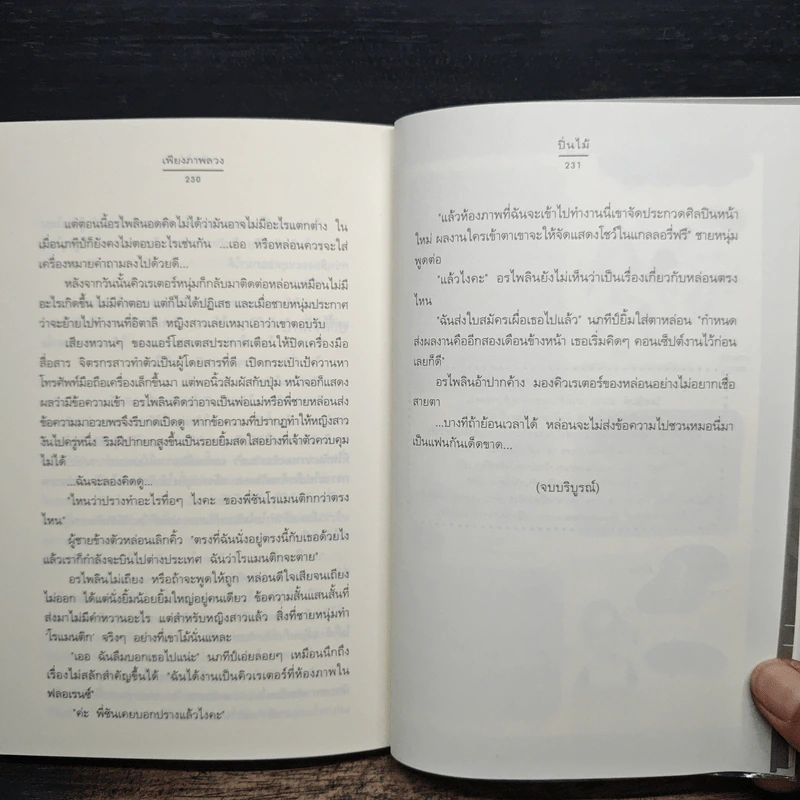 เพียงภาพลวง
230
แต่ตอนนี้อรไพลินอดคิดไม่ได้ว่ามันอาจไม่มีอะไรแตกต่าง ใน
เมื่อนภทีป์ก็ยังคงไม่ตอบอะไรเช่นกัน ...เออ หรือหล่อนควรจะใส่
เครื่องหมายคำถามลงไปด้วยดี...
หลังจากวันนั้นคิวเรเตอร์หนุ่มก็กลับมาติดต่อหล่อนเหมือนไม่มี
อะไรเกิดขึ้น ไม่มีคำตอบ แต่ก็ไม่ได้ปฏิเสธ และเมื่อชายหนุ่มประกาศ
ว่าจะย้ายไปทำงานที่อิตาลี หญิงสาวเลยเหมาเอาว่าเขาตอบรับ
เสียงหวานๆ ของแอร์โฮสเตสประกาศเตือนให้ปิดเครื่องมือ
สื่อสาร จิตรกรสาวทำตัวเป็นผู้โดยสารที่ดี เปิดกระเป๋าเป้ควานหา
โทรศัพท์มือถือเครื่องเล็กขึ้นมา แต่พอนิ้วสัมผัสกับปุ่ม หน้าจอก็แสดง
ผลว่ามีข้อความเข้า อรไพลินคิดว่าอาจเป็นพ่อแม่หรือพี่ชายหล่อนส่ง
ข้อความมาอวยพรจึงรีบกดเปิดดู หากข้อความที่ปรากฏทำให้หญิงสาว
งันไปครู่หนึ่ง ริมฝีปากยกสูงขึ้นเป็นรอยยิ้มสดใสอย่างที่เจ้าตัวควบคุม
ไม่ได้
...ฉันจะลองคิดดู...
"ไหนว่าปรางทำอะไรทื่อๆ ไงคะ ของพี่ซันโรแมนติกกว่าตรง
ไหน"
ผู้ชายข้างตัวหล่อนเลิกคิ้ว "ตรงที่ฉันนั่งอยู่ตรงนี้กับเธอด้วยไง
แล้วเราก็กำลังจะบินไปต่างประเทศ ฉันว่าโรแมนติกจะตาย"
อรไพลินไม่เถียง หรือถ้าจะพูดให้ถูก หล่อนดีใจเสียจนเถียง
ไม่ออก ได้แต่นั่งยิ้มน้อยยิ้มใหญ่อยู่คนเดียว ข้อความสั้นแสนสั้นที่
ส่งมาไม่มีคำหวานอะไร แต่สำหรับหญิงสาวแล้ว สิ่งที่ชายหนุ่มทำ
'โรแมนติก' จริงๆ อย่างที่เขาโม้นั่นแหละ
"เออ ฉันลืมบอกเธอไปแน่ะ" นภทีป์เอ่ยลอยๆ เหมือนนึกถึง
เรื่องไม่สลักสำคัญขึ้นได้ "ฉันได้งานเป็นคิวเรเตอร์ที่ห้องภาพใน
ฟลอเรนซ์"
"ค่ะ พี่ซันเคยบอกปรางแล้วไงคะ"
ปิ่นไม้
231
"แล้วห้องภาพที่ฉันจะเข้าไปทำงานนี่เขาจัดประกวดศิลปินหน้า
ใหม่ ผลงานใครเข้าตาเขาจะให้จัดแสดงโชว์ในแกลลอรี่ฟรี" ชายหนุ่ม
พูดต่อ
"แล้วไงคะ" อรไพลินยังไม่เห็นว่าเป็นเรื่องเกี่ยวกับหล่อนตรง
ไหน
"ฉันส่งใบสมัครเผื่อเธอไปแล้ว" นภทีป์ยิ้มใส่ตาหล่อน "กำหนด
ส่งผลงานคืออีกสองเดือนข้างหน้า เธอเริ่มคิดๆ คอนเซ็ปต์งานไว้ก่อน
เลยก็ดี"
อรไพลินอ้าปากค้าง มองคิวเรเตอร์ของหล่อนอย่างไม่อยากเชื่อ
สายตา
...บางทีถ้าย้อนเวลาได้ หล่อนจะไม่ส่งข้อความไปชวนหมอนี่มา
เป็นแฟนกันเด็ดขาด...
(จบบริบูรณ์)